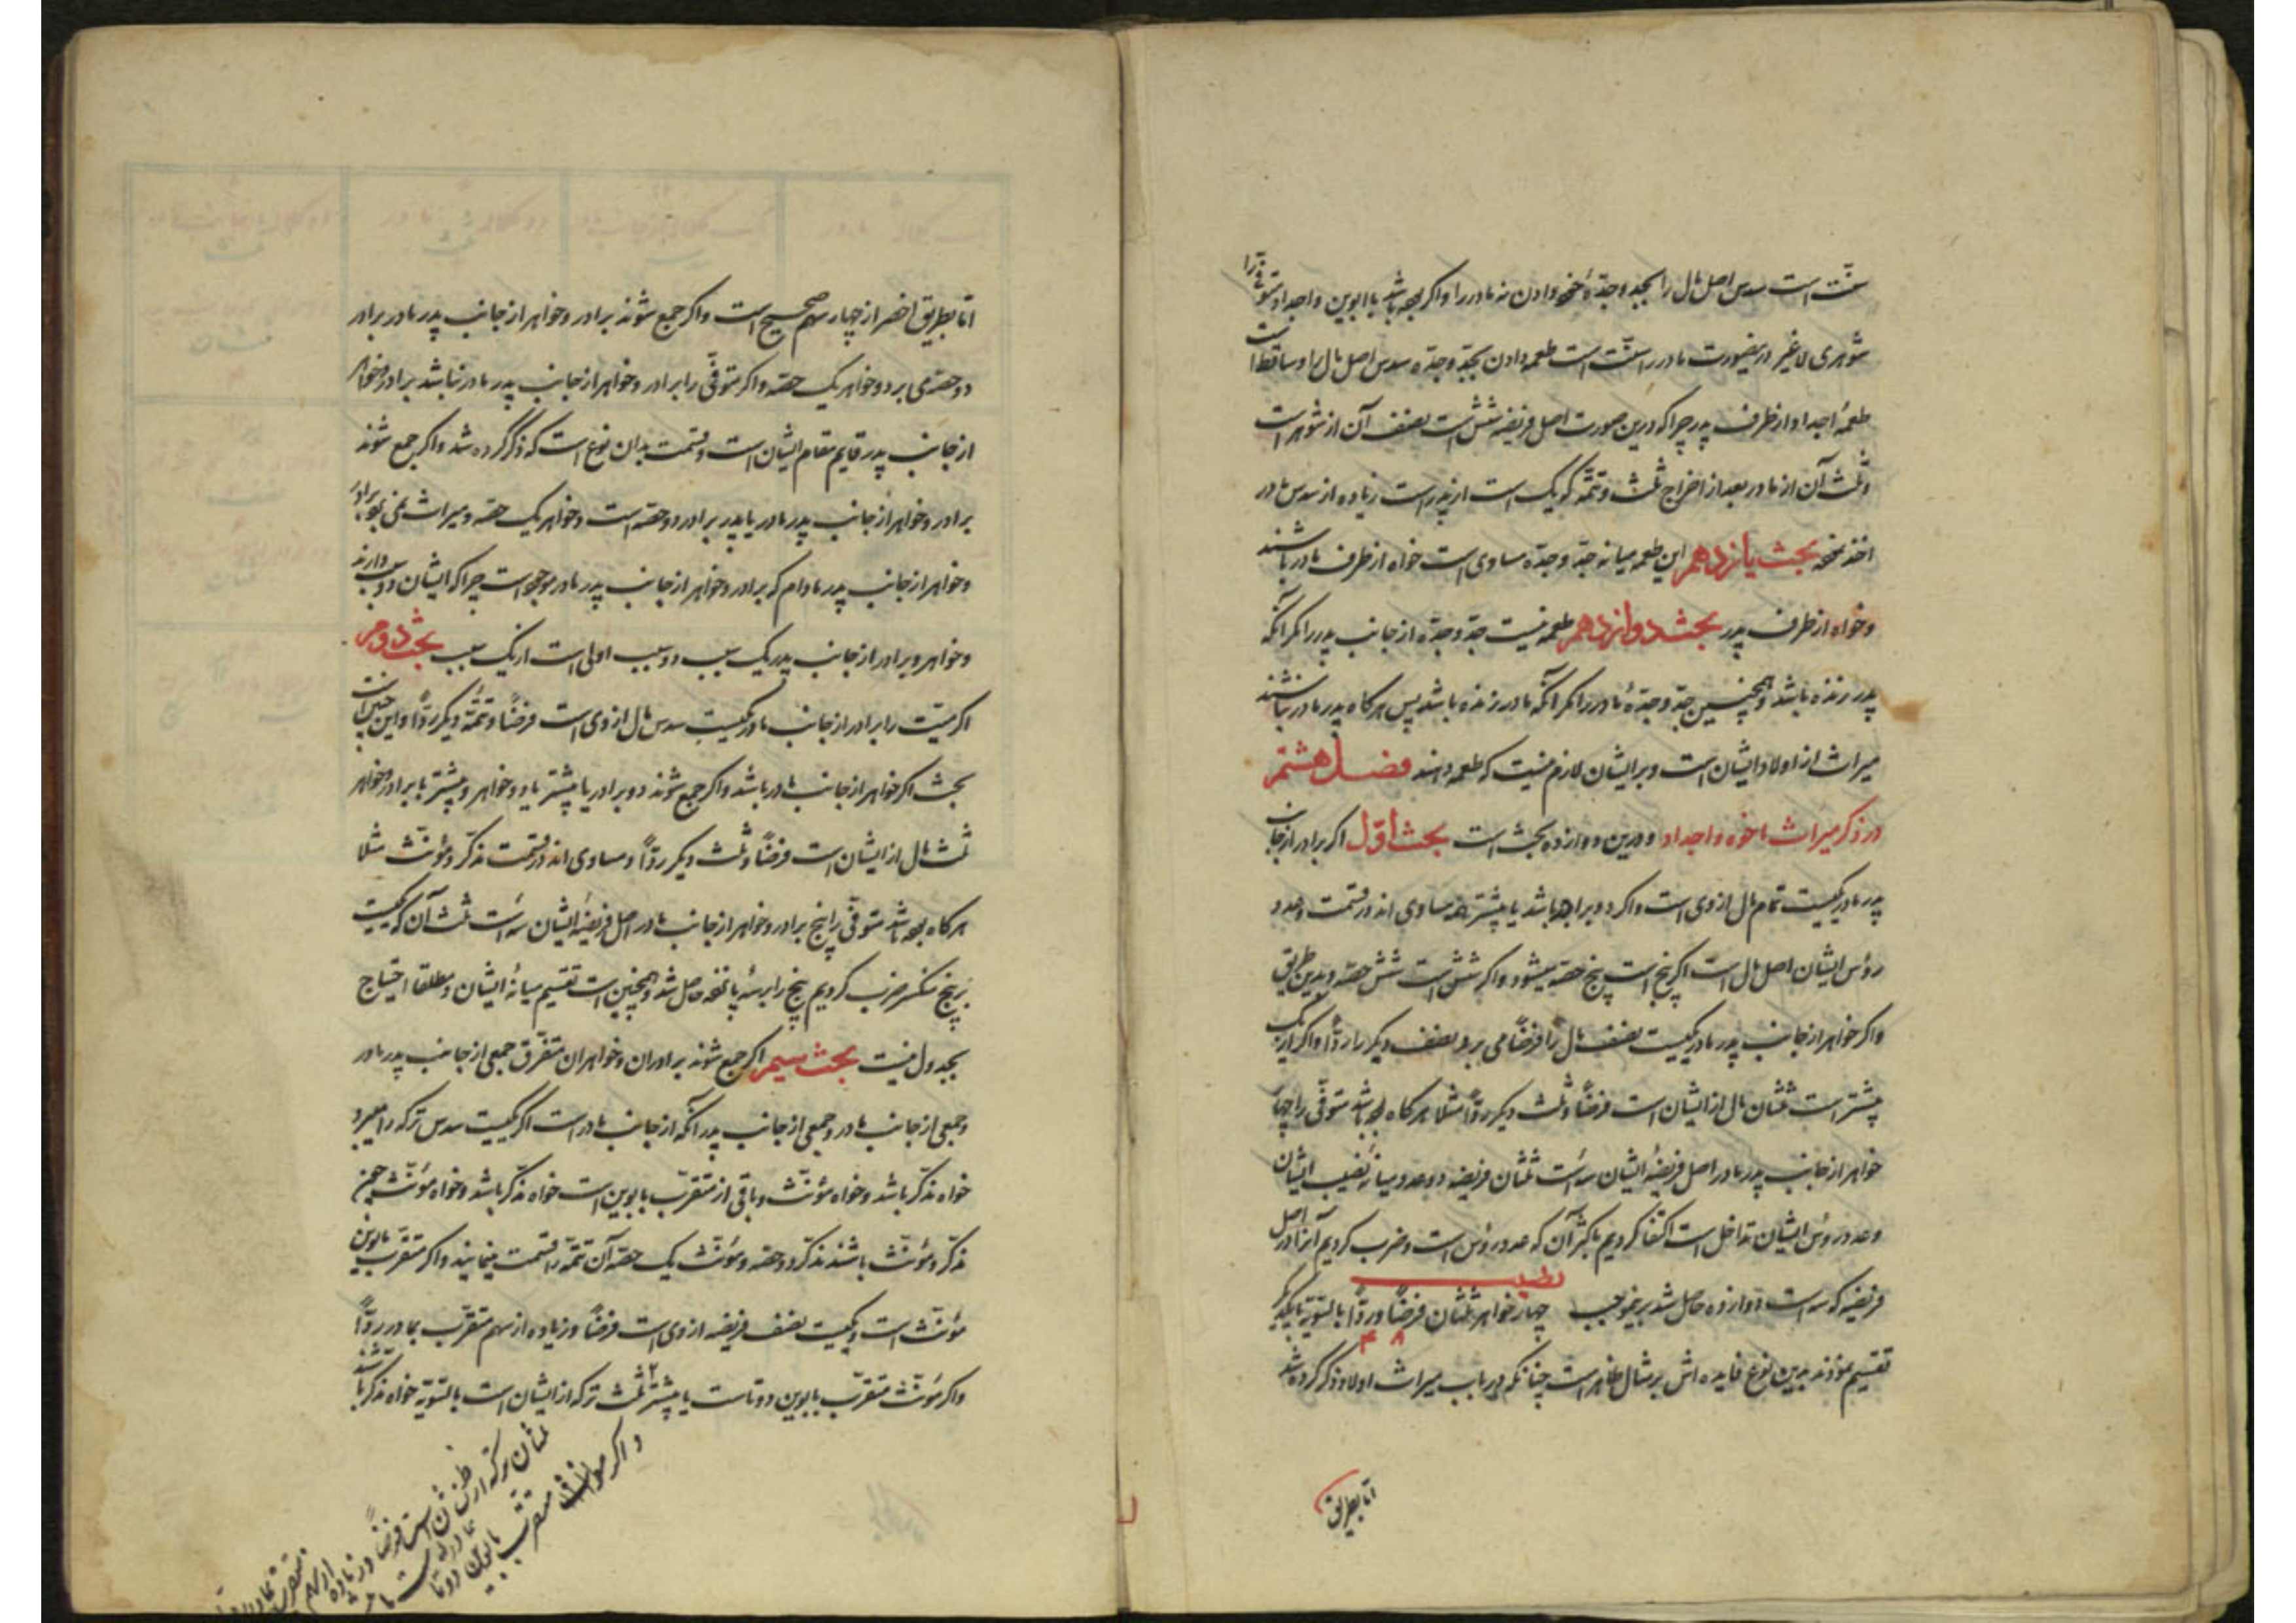 سنّت است سدس اصل مال را بجد و جدّهٔ خود دادن نه مادر را و اگر بوده باشد با ابوین و اجداد متوفّی را
شوهری لا غیر درینصورت مادر را سنّت است طعمه دادن بجدّ و جدّه سدس اصل مال را و ساقط است
طعمهٔ اجداد از طرف پدر چرا که درین صورت اصل فریضه شش است نصف آن از شوهر است
و ثلث آن از مادر بعد از اخراج ثلث و تتمّه که یک است از پدر است زیاده از سدس مادر
اخذ نموده بحث یازدهم این طعمه میانه جدّ و جدّه مساوی است خواه از طرف مادر باشند
و خواه از طرف پدر بحث دوازدهم طعمه نیست جدّ و جدّه از جانب پدر را مگر آنکه
پدر زنده باشد و همچنین جدّ و جدّهٔ مادر را مگر آنکه مادر زنده باشد پس هرگاه پدر مادر نباشند
میراث از اولاد ایشان است و بر ایشان لازم نیست که طعمه دهند فصل هشتم
در ذکر میراث اخوه و اجداد و درین دوازده بحث است بحث اوّل اگر برادر از جانب
پدر مادر یکیست تمام مال از وی است و اگر دو برادر باشد یا بیشتر همه مساوی اند در قسمت و عدد
رؤس ایشان اصل مال است اگر پنج است پنج حصّه میشود و اگر شش است شش حصّه و بدین طریق
و اگر خواهر از جانب پدر مادر یکیست نصف مال را فرضاً می برد و نصف دیگر را ردّاً و اگر از یک
بیشتر است ثلثان مال از ایشان است فرضاً و ثلث دیگر ردّاً مثلا هرگاه بوده باشد متوفّی را چهار
خواهر از جانب پدر مادر اصل فریضهٔ ایشان سه است ثلثان فریضه دو عدد و میانهٔ نصیب ایشان
و عدد رؤس ایشان تداخل است اکتفا کردیم باکثر آن که عدد رؤس است و ضرب کردیم آنرا در اصل
فریضه که سه است دوازده حاصل شد برینموجب چهار خواهر ثلثان فرضاً و ردّاً بالسّویّه با یکدیگر
۸ ۴
تقسیم نمودند بدین نوع فایده اش بر مثال ظاهر است چنانکه در باب میراث اولاد ذکر کرده شد
امّا بطریق
امّا بطریق اخصر از چهار سهم صحیح است و اگر جمع شوند برادر و خواهر از جانب پدر مادر برادر
دو حصّه می برد و خواهر یک حصّه و اگر متوفّی را برادر و خواهر از جانب پدر مادر نباشد برادر و خواهر
از جانب پدر قایم مقام ایشان است و قسمت بدان نوع است که ذکر کرده شد و اگر جمع شوند
برادر و خواهر از جانب پدر مادر یا پدر برادر دو حصّه است و خواهر یک حصّه و میراث نمی برد برادر
و خواهر از جانب پدر مادام که برادر و خواهر از جانب پدر مادر موجود است چرا که ایشان دو سبب دارند
و خواهر و برادر از جانب پدر یک سبب دو سبب اولی است از یک سبب بحث دوم
اگر میّت را برادر از جانب مادر یکیست سدس مال از وی است فرضاً و تتمّه دیگر ردّاً و این چنین است
بحث اگر خواهر از جانب مادر باشد و اگر جمع شوند دو برادر یا بیشتر یا دو خواهر و بیشتر یا برادر و خواهر
ثلث مال از ایشان است فرضاً و ثلث دیگر ردّاً و مساوی اند در قسمت مذکّر و مؤنّث مثلا
هرگاه بوده باشد متوفّی را پنج برادر و خواهر از جانب مادر اصل فریضهٔ ایشان سه است ثلث آن که یکیست
بر پنج منکسر ضرب کردیم پنج را بر سه پانزده حاصل شد و همچنین است تقسیم میانهٔ ایشان و مطلقا احتیاج
بجدول نیست بحث سیم اگر جمع شوند برادران و خواهران متفرّق جمعی از جانب پدر مادر
و جمعی از جانب مادر و جمعی از جانب پدر آنکه از جانب مادر است اگر یکیست سدس ترکه را میبرد
خواه مذکّر باشد و خواه مؤنّث و باقی از متقرّب بابوین است خواه مذکّر باشد و خواه مؤنّث
مذکّر و مؤنّث باشند مذکّر دو حصّه و مؤنّث یک حصّه آن تتمّه را قسمت مینمایند و اگر متقرّب بابوین
مؤنّث است و یکیست نصف فریضه از وی است فرضاً و زیاده از سهم متقرّب بمادر ردّاً
و اگر مؤنّث متقرّب بابوین دوتاست یا بیشتر ثلث ترکه از ایشان است بالسّویّه خواه مذکّر باشند
و اگر مؤنّث متقرّب بابوین دوتا
ثلثان ترکه از ایشان است فرضاً و زیاده از سهم متقرّب بمادر